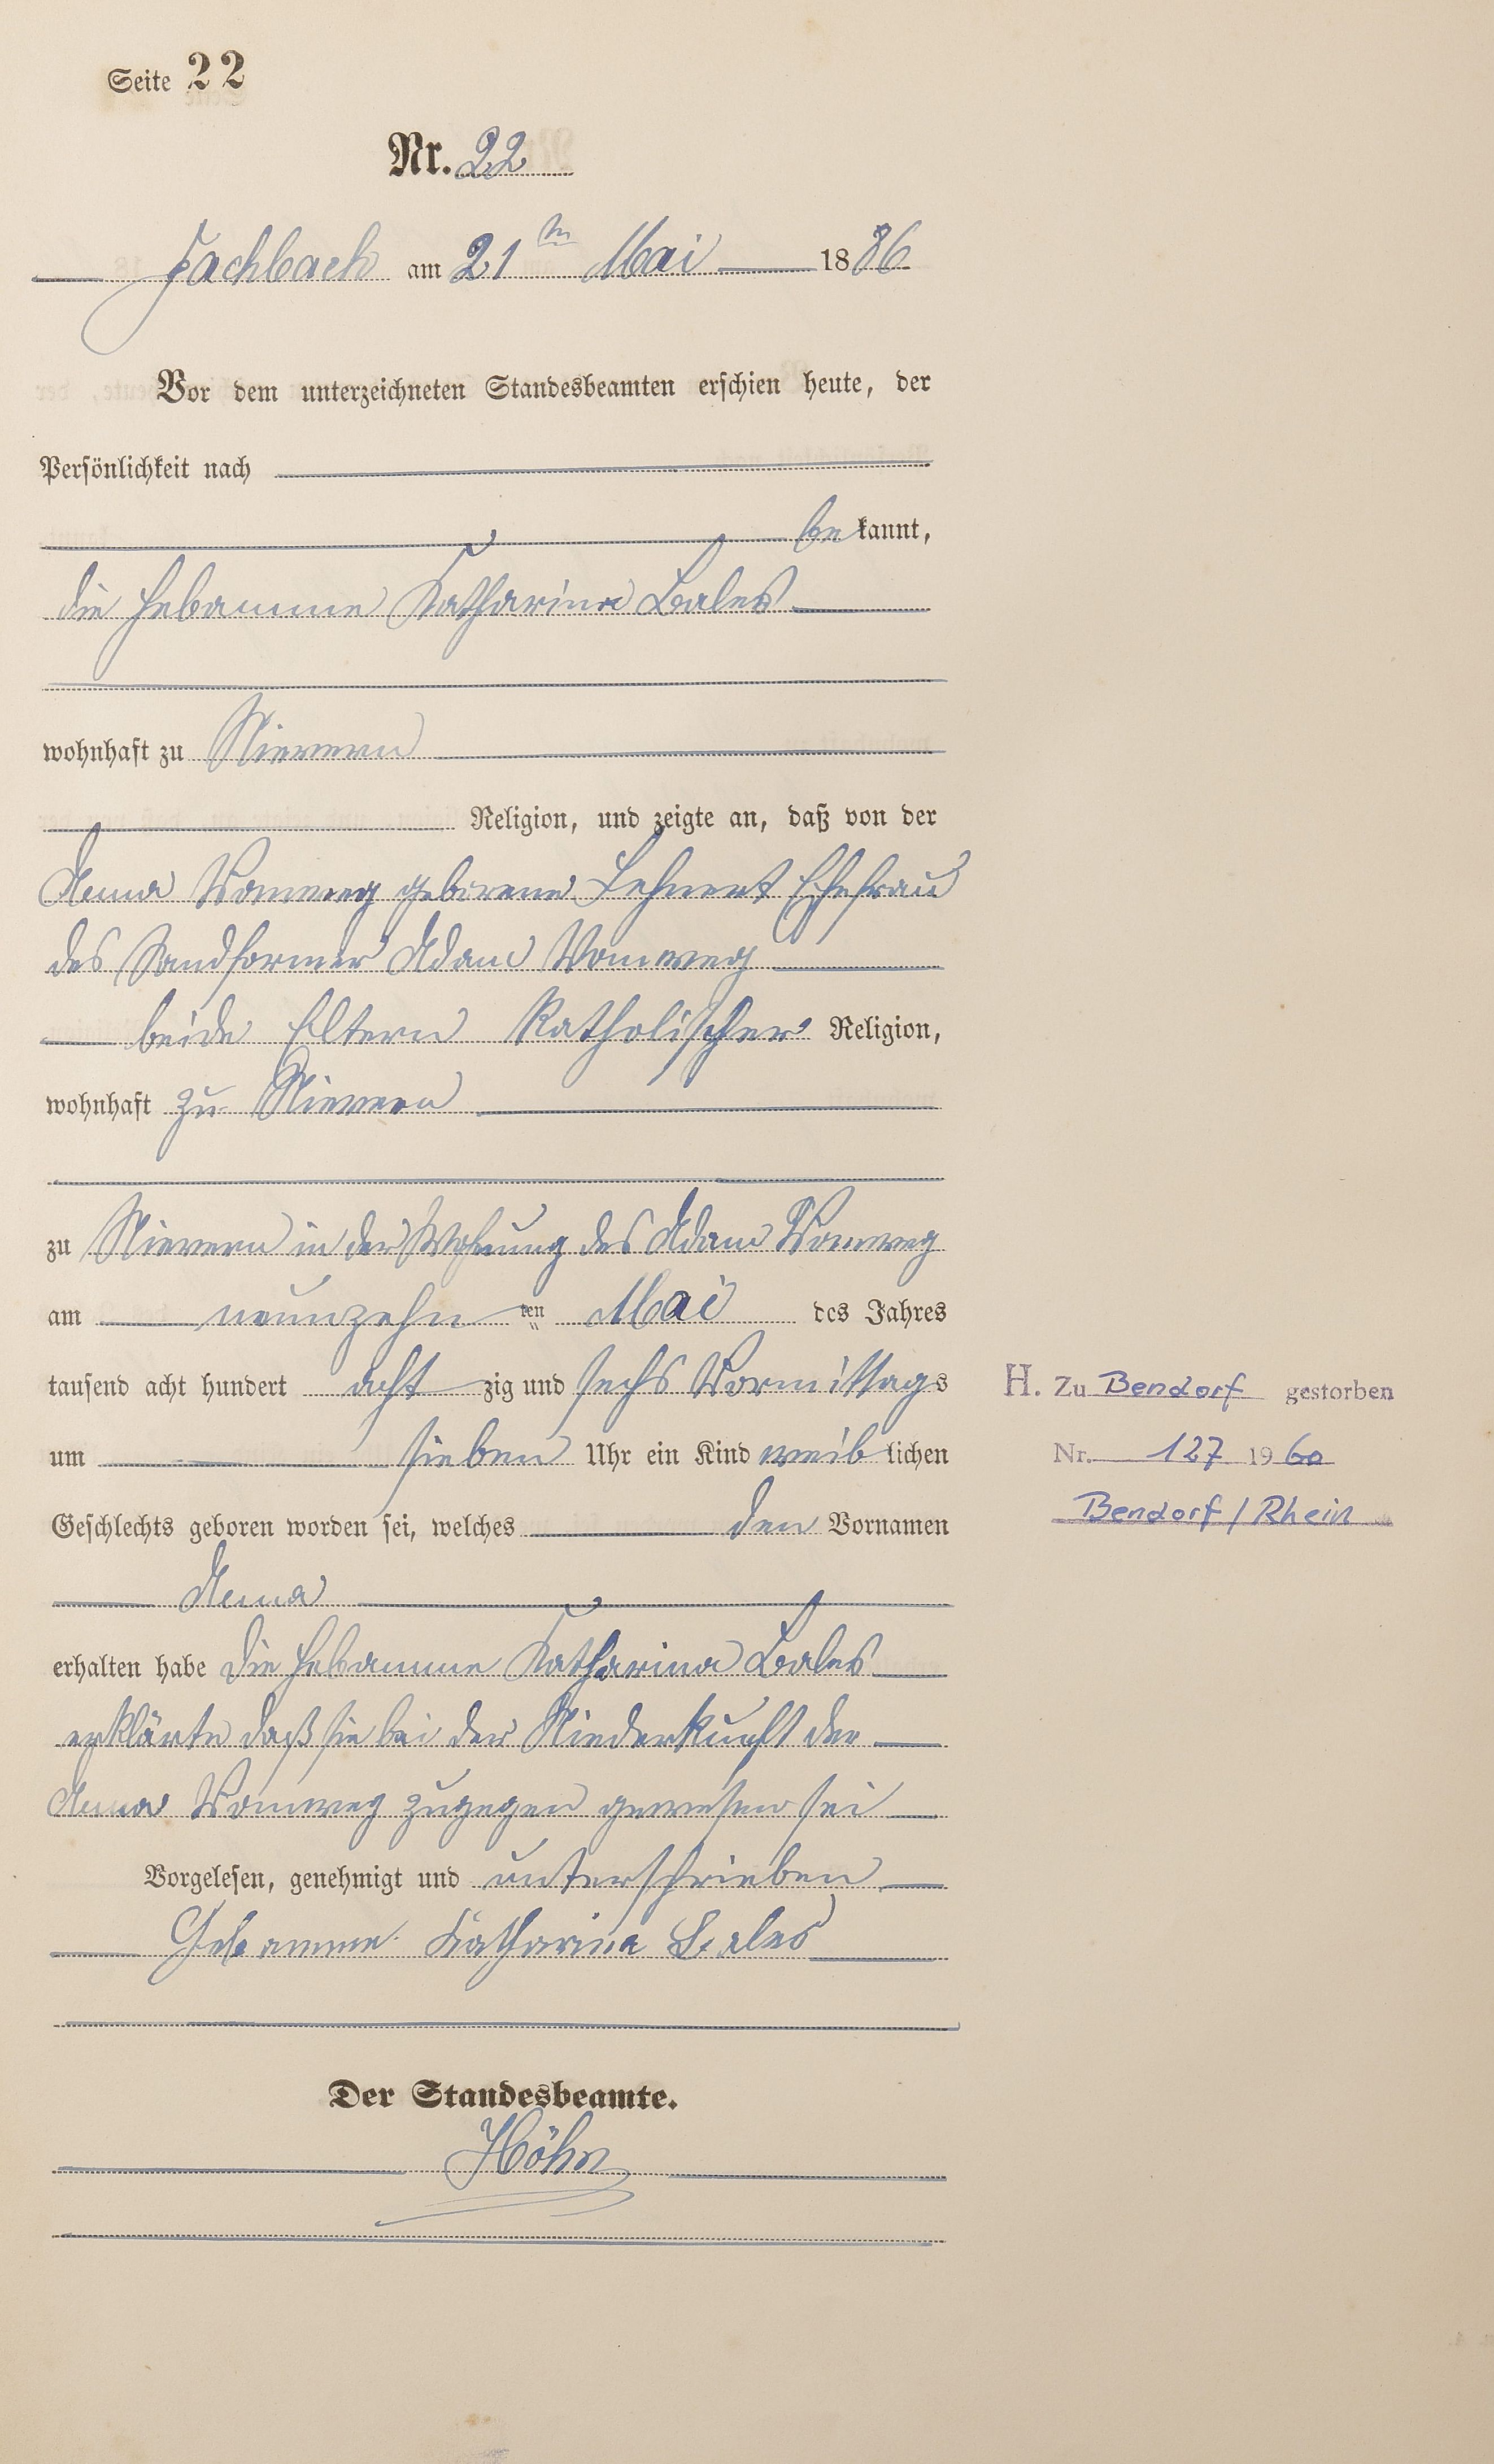 Seite 22
Nr. 22
Fachbach am 21ten Mai 1886
Vor dem unterzeichneten Standesbeamten erschien heute, der
Persönlichkeit nach
bekannt,
die Hebamme Katharina Bales
wohnhaft zu Nievern
Religion, und zeigte an, daß von der
Anna Vomweg geborene Lehnert Ehefrau
des Sandformer Adam Vomweg
beide Eltern Katholischer Religion,
wohnhaft zu Nievern
zu Nievern in der Wohnung des Adam Vomweg
am neunzehn ten Mai des Jahres
tausend acht hundert acht zig und sechs Vormittags
um sieben Uhr ein Kind weiblichen
Geschlechts geboren worden sei, welches den Vornamen
Anna
erhalten habe die Hebamme Katharina Bales
erklärte daß sie bei der Niederkunft der
Anna Vomweg zugegen gewesen sei
Vorgelesen, genehmigt und unterschrieben
Hebamme Katharina Bales
Der Standesbeamte.
Höhn
H. Zu Bendorf gestorben
Nr. 127 1960
Bendorf / Rhein